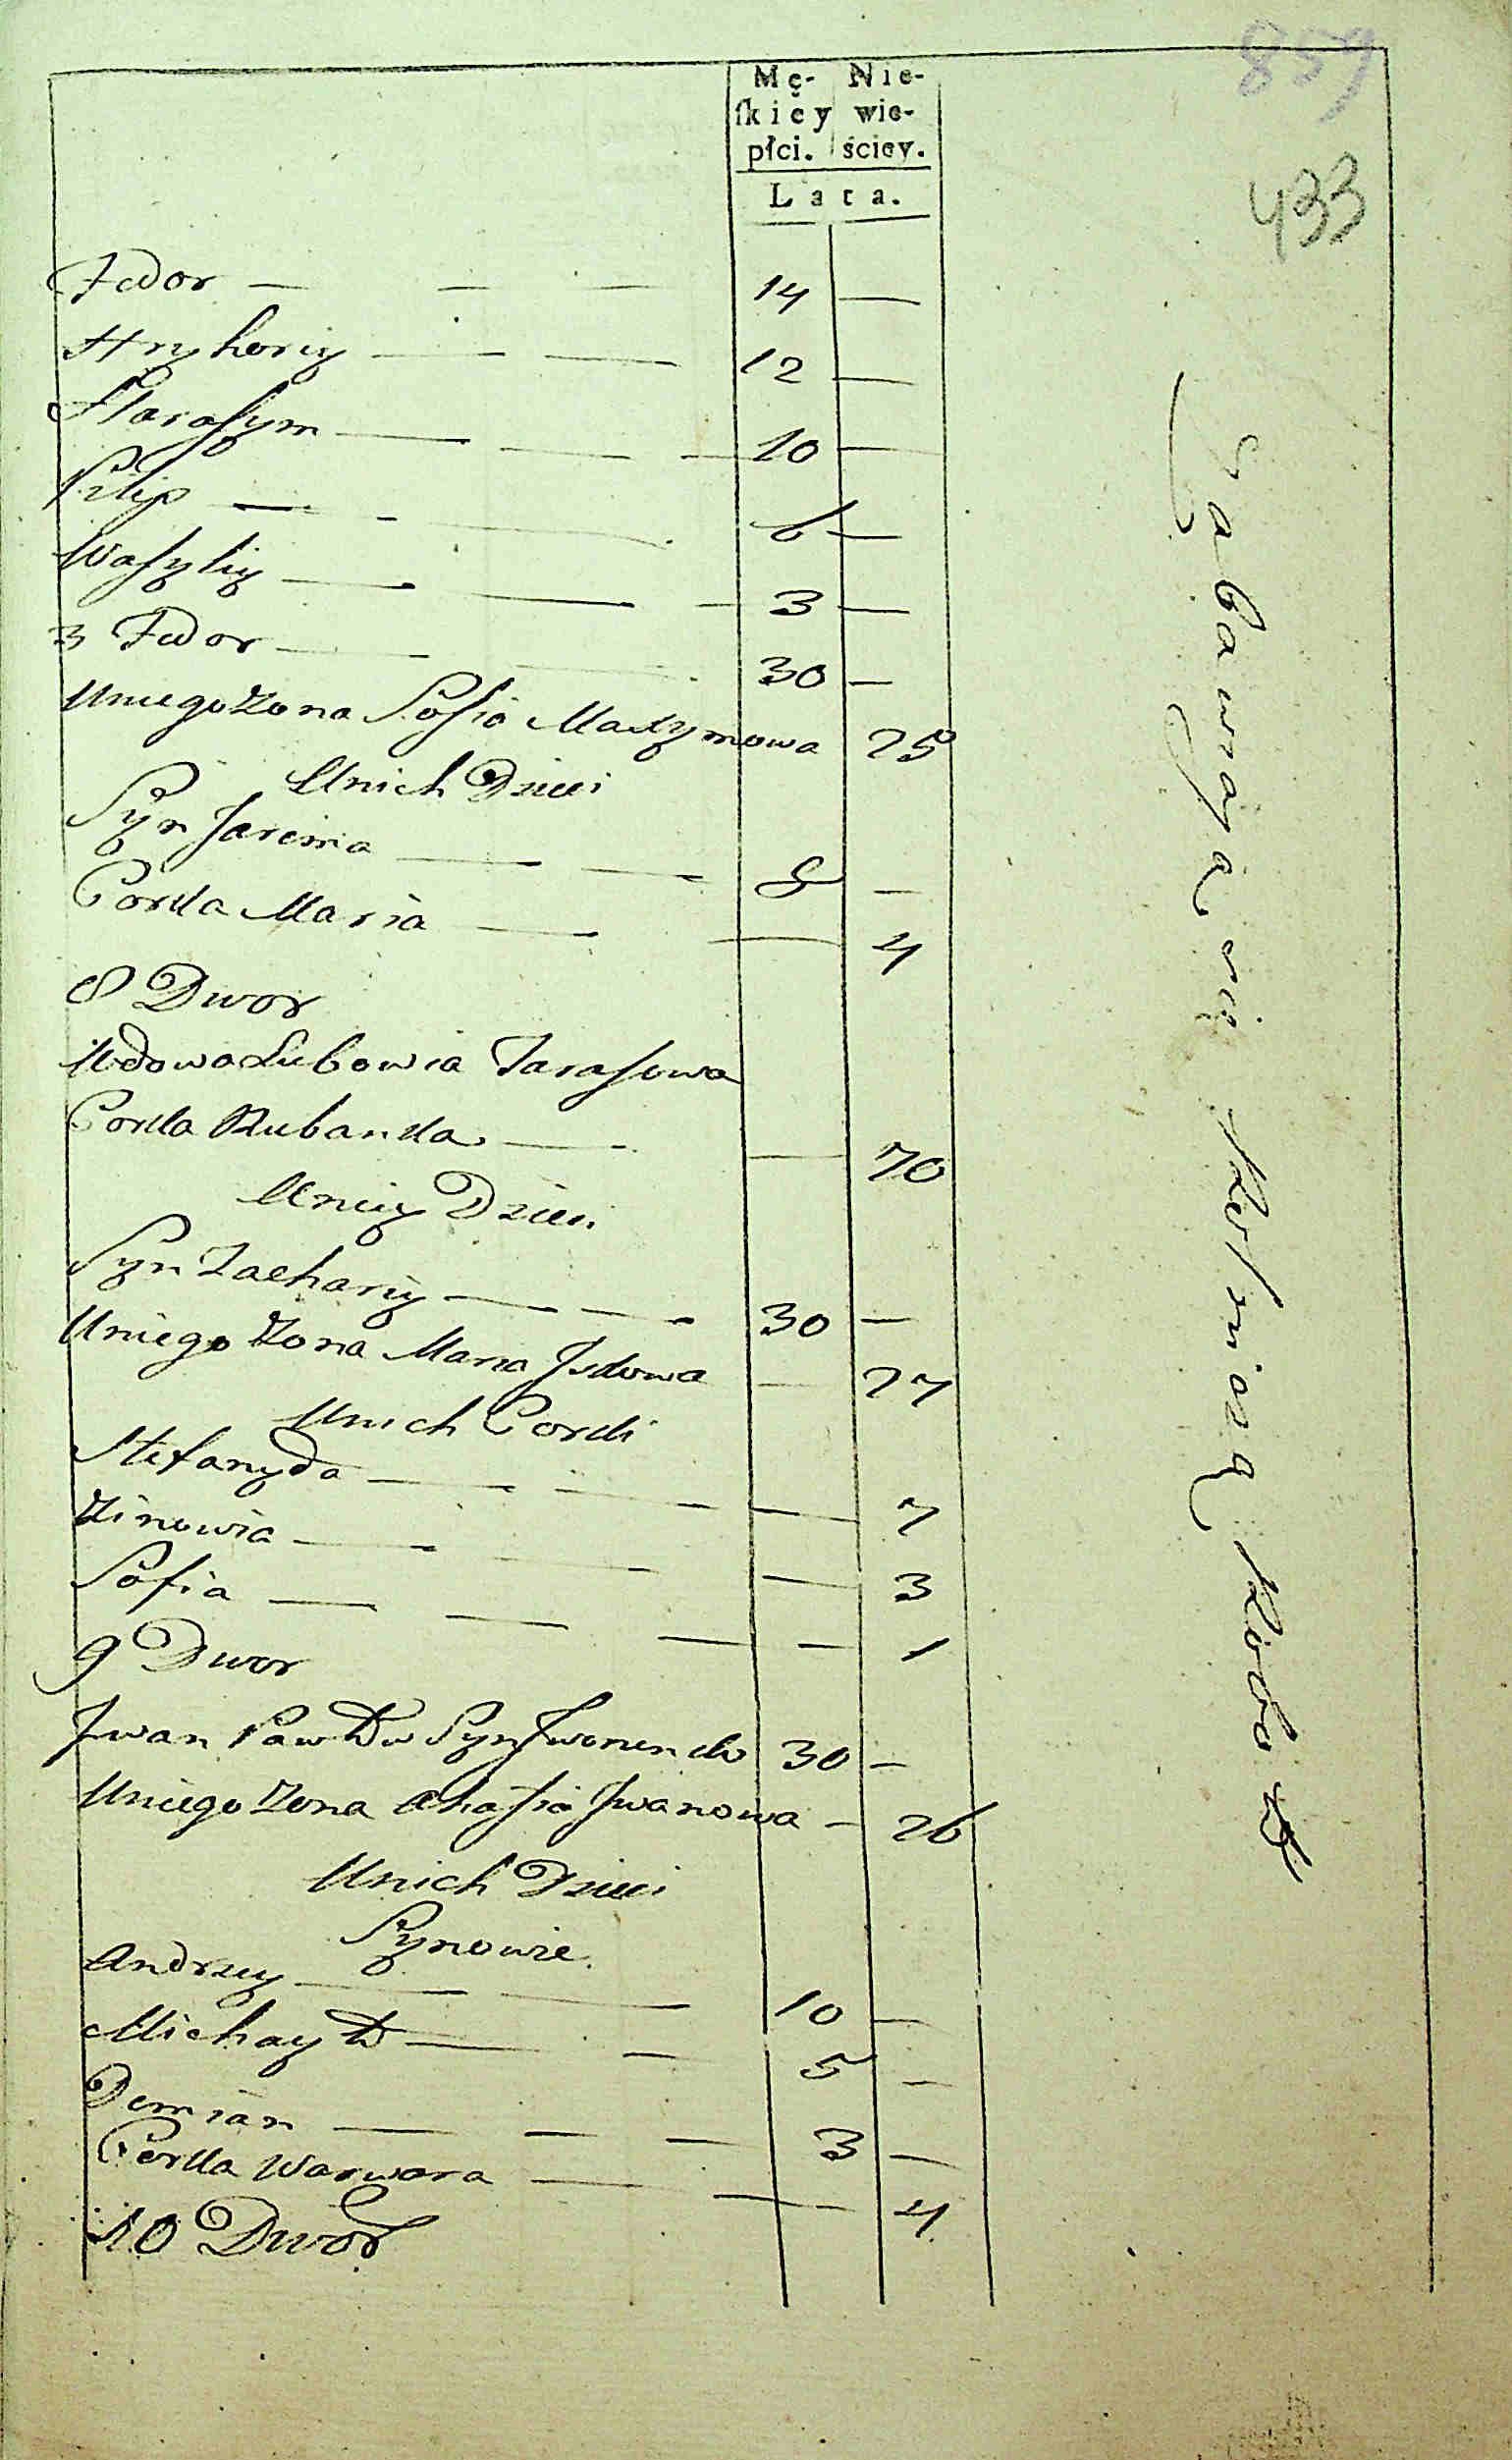 859
433
Mę- Nie-
ſkiey wie-
płci. ściey.
Lata.
Fedor — — — 14 —
Hryhoriy — — — 12 —
Harasym — — — 10 —
Pilip — — — 6 —
Wasyliy — — — 3 —
3 Fedor — — — 30 —
Uniego Zona Sofia Maxymowa 25
Unich Dzieci
Syn Jarema — — — 8 —
Corka Maria — — 4
8 Dwor
Wdowa Lubowia Tarasowa
Corka Rubanka — — 70
Uniey Dzieci
Syn Zachariy — — — 30 —
Uniego Zona Maria — 27
Unich Corki
Stefanyda — — — — 7
Zinowia — — — — 3
Sofia — — — — 1
9 Dwor
Jwan Pawłow Syn Jwonenko 30 —
Uniego Zona Ahafia Jwanowa — 26
Unich Dzieci
Synowie
Andrzey — — — 10 —
Michayło — — 5 —
Demian — — — 3 —
Corka Warwara — — — 4
10 Dwor
Zabawiaią się rolniczą robotą